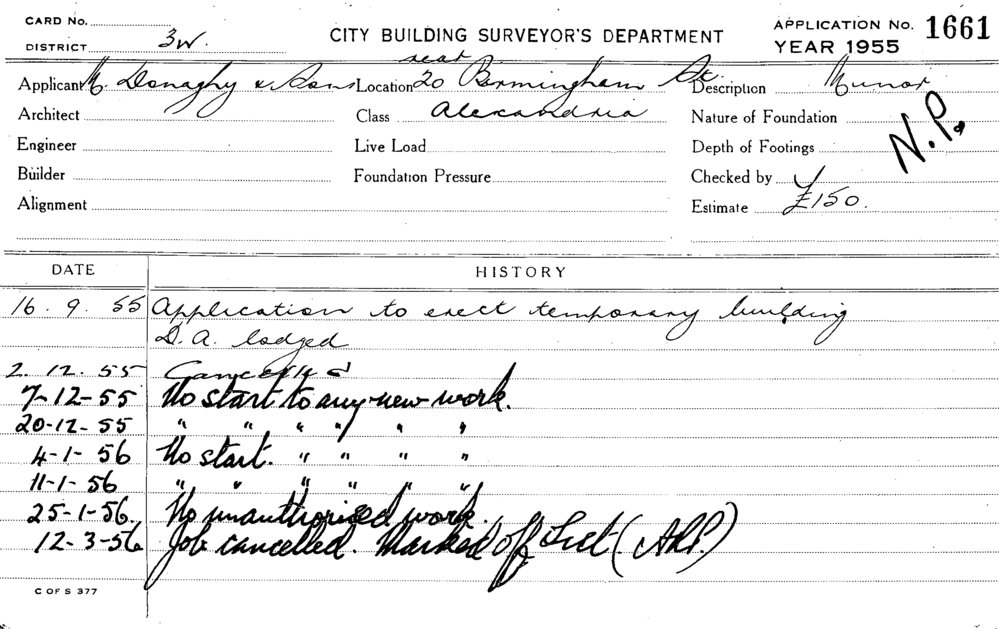 CARD No.
DISTRICT 3W.
CITY BUILDING SURVEYOR'S DEPARTMENT
APPLICATION No. 1661
YEAR 1955
Applicant M. Donaghy & Sons Location rear 20 Birmingham St. Description Minor
Architect Class Alexandria Nature of Foundation
N.P.
Engineer Live Load Depth of Footings
Builder Foundation Pressure Checked by
Alignment Estimate £150.
DATE HISTORY
16.9.55 Application to erect temporary building
D.A. lodged
2.12.55 Cancelled
7-12-55 No start to any new work.
20-12-55 " " " " " "
4-1-56 No start. " " " "
11-1-56 " " " " " "
25-1-56. No unauthorised work.
12-3-56 Job cancelled. Marked off List (
C OF S 377